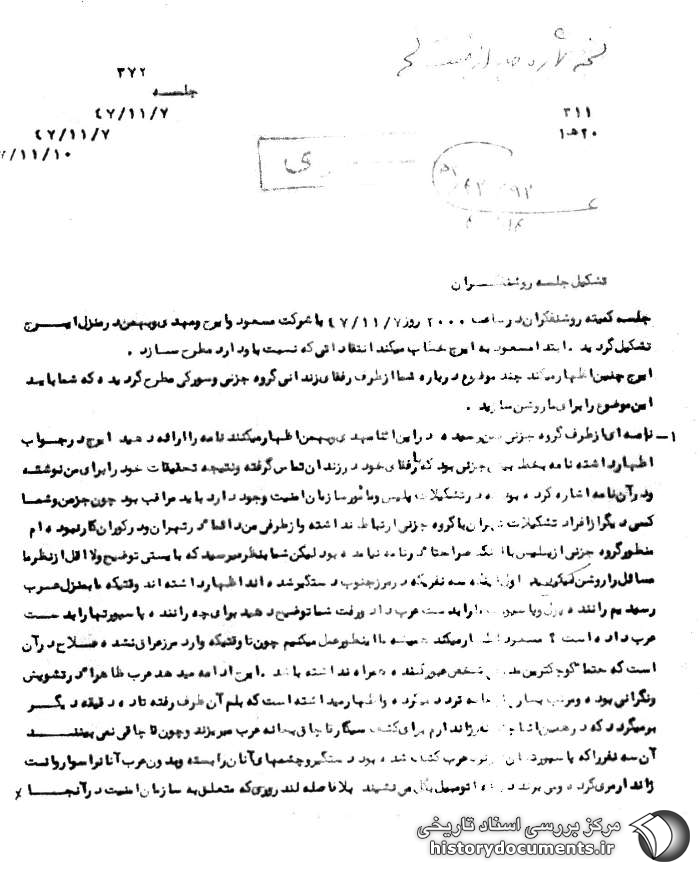 نسخه شماره
۳۷۲
جلسه
۴۷/۱۱/۷
۳۱۱
۴۷/۱۱/۷
۲۰ه۱
/۱۱/۱۰
تشکیل جلسه
جلسه کمیته روشنفکران در ساعت ۲۰۰۰ روز ۴۷/۱۱/۷ با شرکت مسعود و ایرج و مهدی و بهمن در منزل ایرج
تشکیل گردید . ابتدا مسعود به ایرج خطاب میکند انتقاداتی که نسبت باو دارد مطرح سازد .
ایرج چنین اظهار میکند چند موضوع درباره شما از طرف رفقای زندانی گروه جزنی و سورکی مطرح گردیده که شما باید
این موضوع را برای ما روشن سازید .
۱- نامه ای از طرف گروه جزنی بمن رسیده در این اثنا مهدی و بهمن اظهار میکنند نامه را ارائه دهید ایرج در جواب
اظهار داشته نامه بخط بیژن جزنی بود که رفقای خود در زندان تماس گرفته و نتیجه تحقیقات خود را برای من نوشته
و در آن نامه اشاره کرده بود که در تشکیلات پلیس و مامور سازمان امنیت وجود دارد باید مراقب بود چون جز من و شما
کسی دیگر از افراد تشکیلات تهران با گروه جزنی ارتباط نداشته و از طرفی من دائما" در تهران و در کوران کار نبوده ام
منظور گروه جزنی از پلیس با اینکه صراحتا" در نامه نیامده بود لیکن شما بنظر میرسید که بایستی توضیح والا اقل از نظر ما
مسائل را روشن کنید اول اینکه سه نفریکه در مرز جنوب دستگیر شده اند اظهار داشته اند وقتیکه ما بمنزل عرب
رسیدیم راننده پاسپورت ما را بدست عرب داد و رفت شما توضیح دهید برای چه راننده پاسپورتها را بدست
عرب داده است ؟ مسعود اظهار میکند همیشه ما اینطور عمل میکنیم چون تا وقتیکه وارد مرز عراق نشده صلاح در آن
است که حتما" کوچکترین مدرکی شخص عبور کننده همراه نداشته باشد . ایرج ادامه میدهد عرب ظاهرا" در تشویش
و نگرانی بوده و مرتب تردد میکرده و اظهار میداشته است که بلم آن طرف رفته تا ده دقیقه دیگر
برمیگردد که در همین اثنا ژاندارم برای کشف سیگار قاچاق بخانه عرب میریزند و چون قاچاقی نمی بینند
آن سه نفر را که پاسپورتشان نزد عرب کشف شده بود دستگیر و چشمهای آنان را بسته و بدون عرب آنانرا سوار وانت
ژاندارمری کرده و می برند در راه اتومبیل بگل می نشیند بلافاصله لندروری که متعلق به سازمان امنیت در آنجا ×
مرکز بررسی اسناد تاریخی
historydocuments.ir